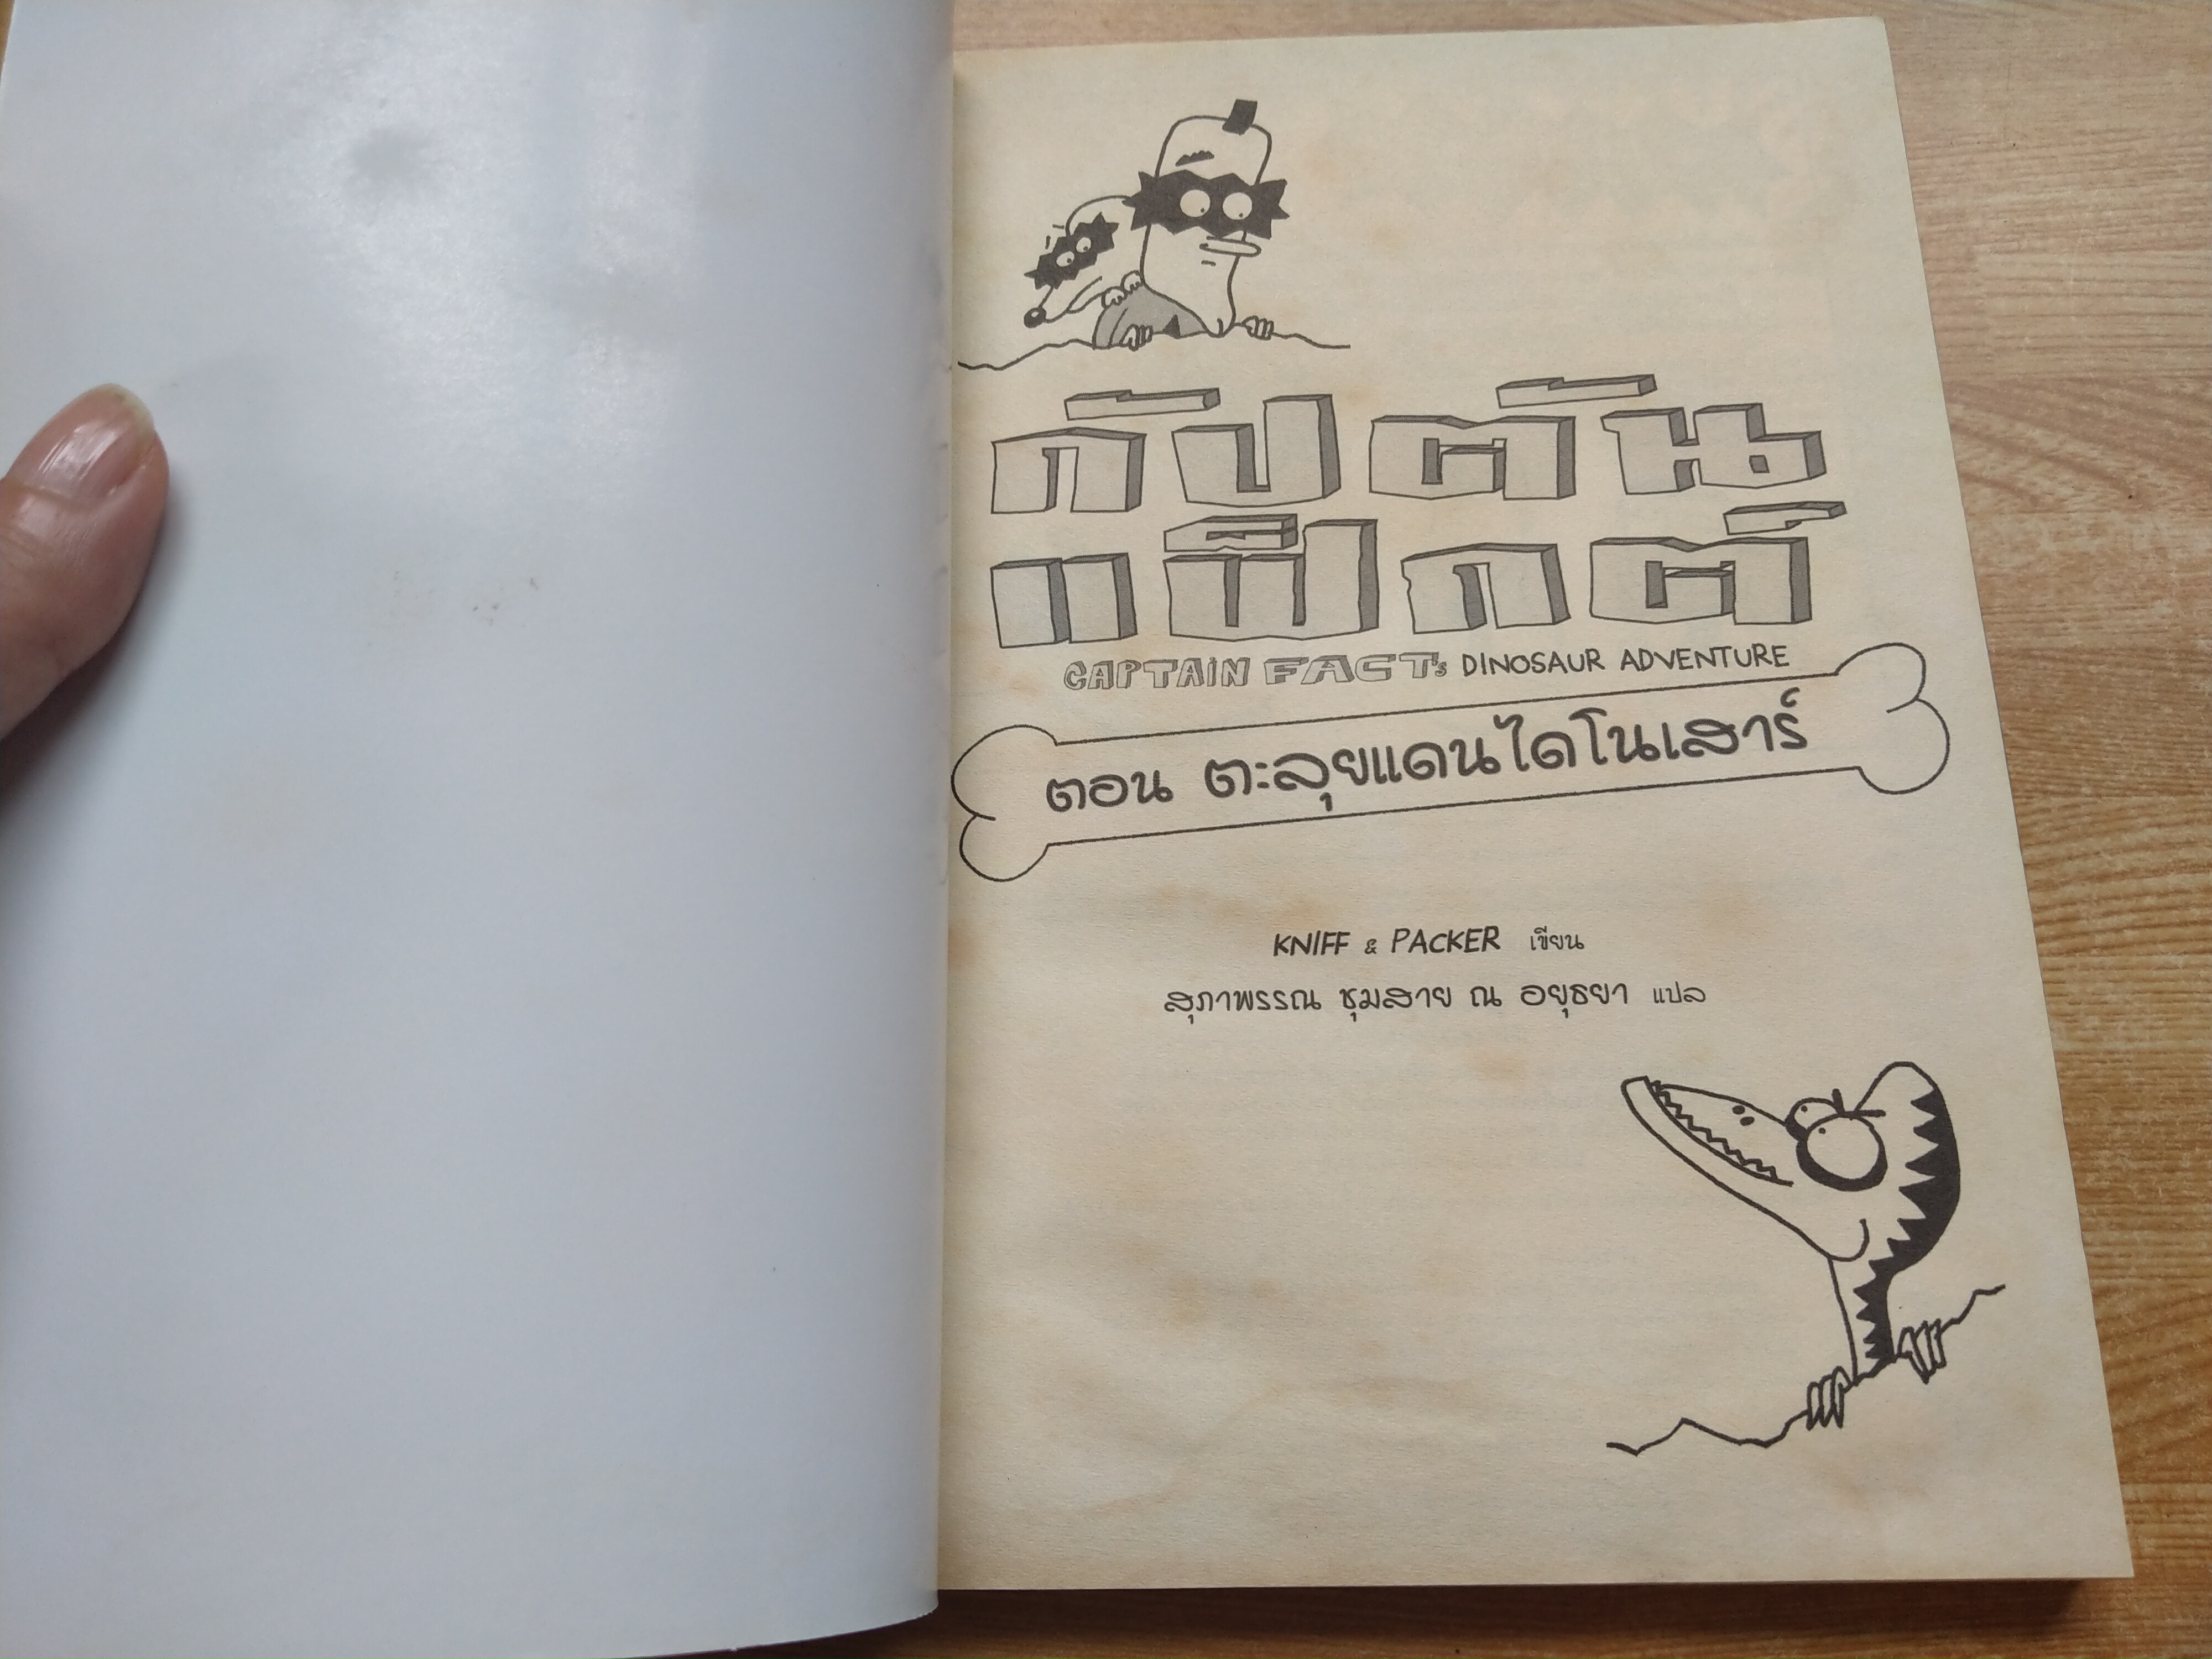 กัปตัน
แฟ็กต์
CAPTAIN FACT's DINOSAUR ADVENTURE
ตอน ตะลุยแดนไดโนเสาร์
KNIFF & PACKER เขียน
สุภาพรรณ ชุมสาย ณ อยุธยา แปล